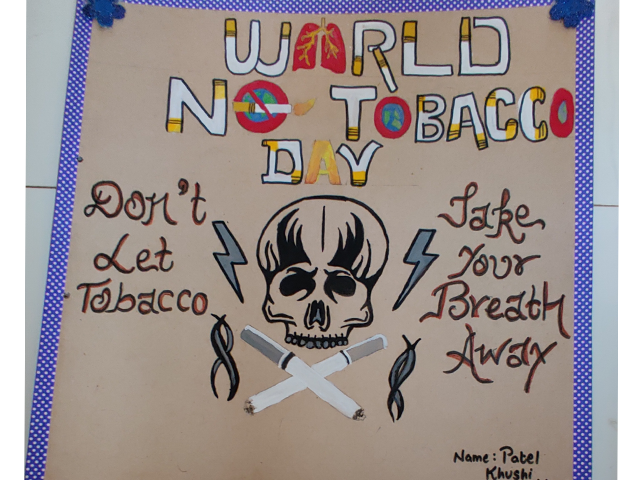 WORLD
NO TOBACCO
DAY
Don't
Let
Tobacco
Take
Your
Breath
Away
Name: Patel
Khushi